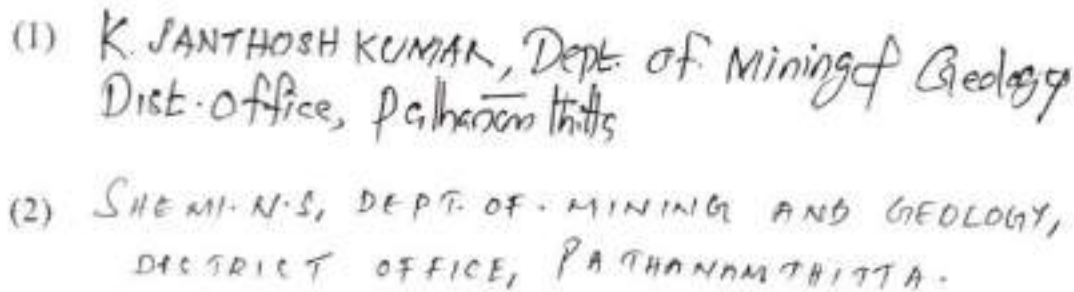 (1) K. SANTHOSH KUMAR, Dept. of Mining & Geology
Dist. Office, Pathanamthitta
(2) SHEMI. N. S, DEPT. OF. MINING AND GEOLOGY,
DISTRICT OFFICE, PATHANAMTHITTA.